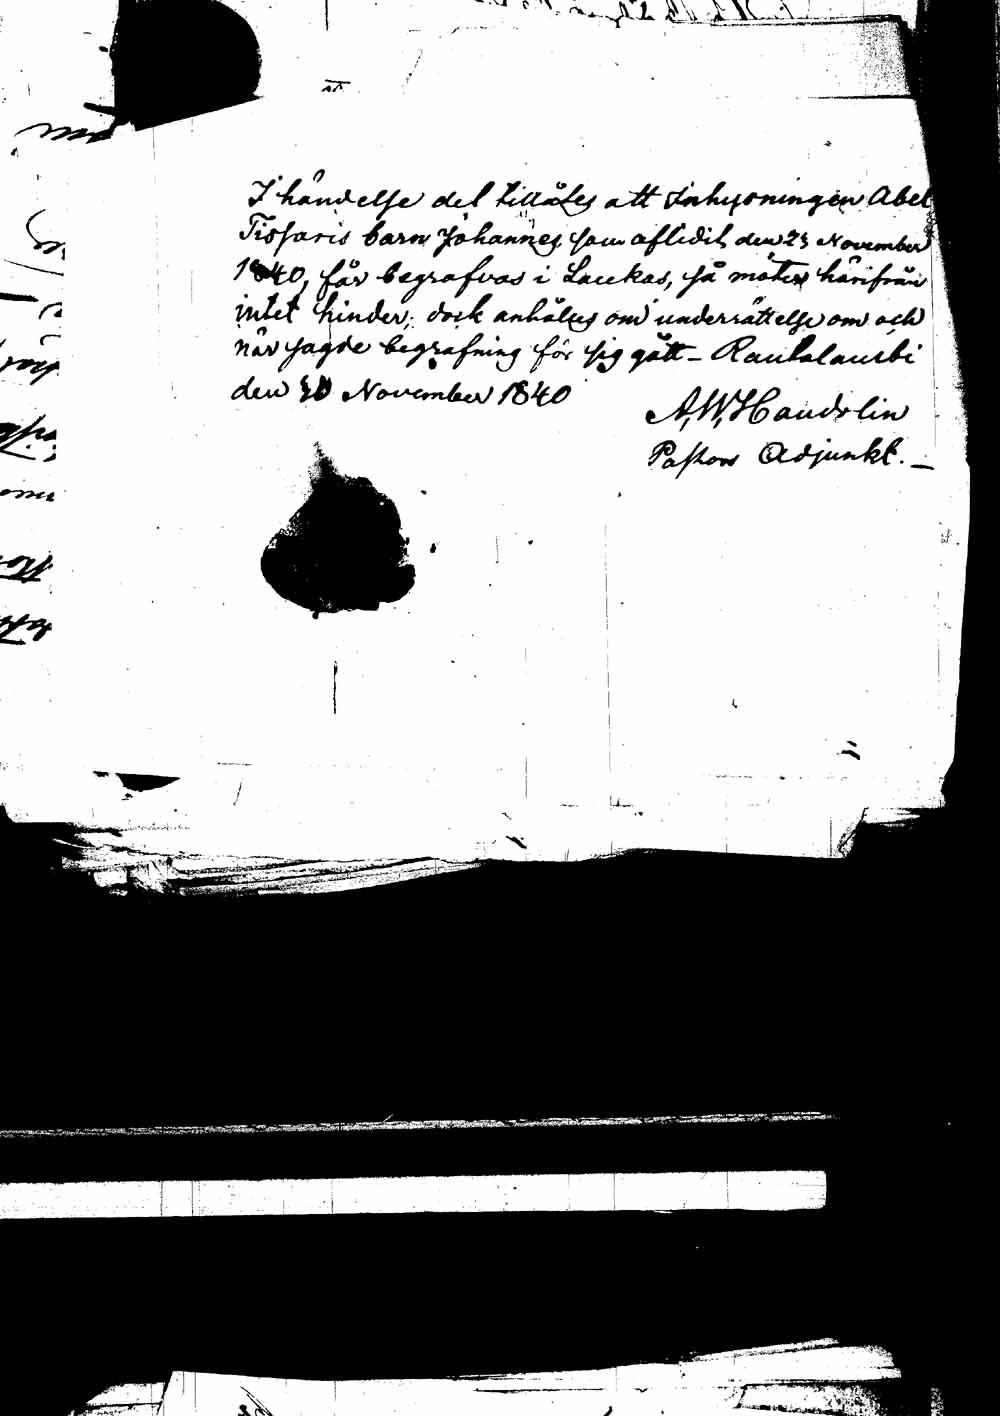 I händelse det tillåtes att Inhysningen Abel
Tiosaris barn Johannes som aflidit den 23 November
1840, får begrafvas i Laukas, så möter härifrån
intet hinder; dock anhålles om underrättelse om och
når sagde begrafning för sig gått – Rautalambi
den November 1840
A, W, Handolin
Pastors Adjunkt. –